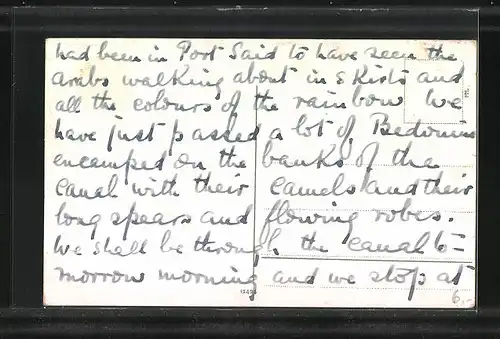 had been in Port Said to have seen the
Arabs walking about in skirts and
all the colours of the rainbow We
have just passed a lot of Bedouins
encamped on the banks of the
canal with their camels and their
long spears and flowing robes.
We shall be through the canal to=
morrow morning and we stop at
6,-